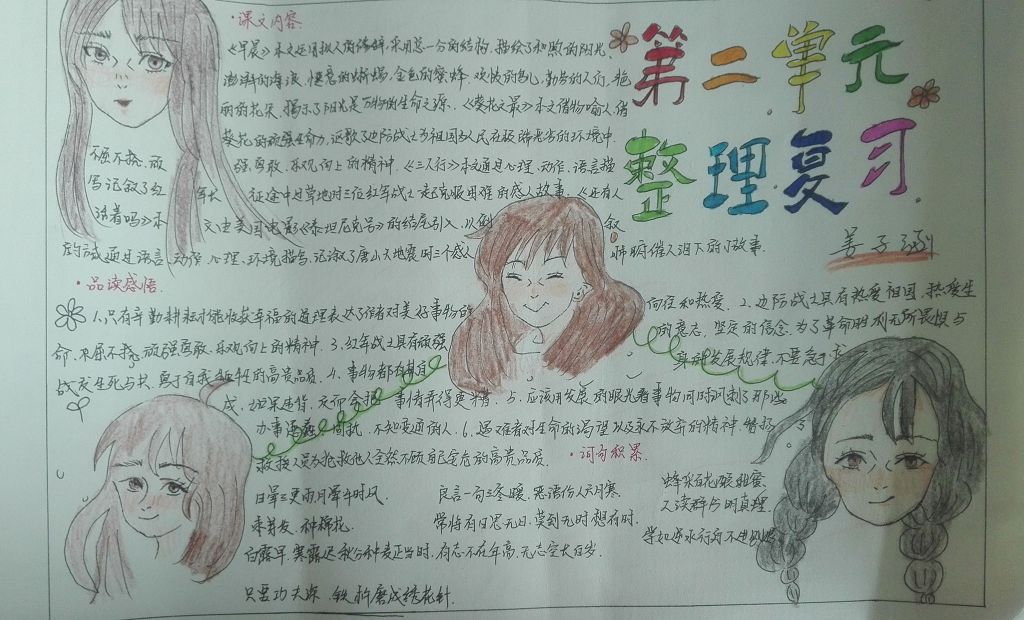 ·课文内容
第二单元
整理复习
《早晨》本文运用拟人的修辞,采用总一分的结构,描绘了和煦的阳光、
澎湃的海浪、惬意的蜥蜴、金色的蜜蜂、欢快的鸟儿、勤劳的人们、艳
丽的花朵,揭示了阳光是万物的生命之源。《葵花之最》本文借物喻人,借
葵花的顽强生命力,讴歌了边防战士为祖国为人民在极端恶劣的环境中,
不屈不挠、顽强勇敢、乐观向上的精神。《三人行》本文通过心理、动作、语言描
写记叙了红军长征途中过草地时三位红军战士克服困难的感人故事。《还有人
活着吗》本文由美国电影《泰坦尼克号》的结尾引入,以倒叙
的方式通过语言、动作、心理、环境描写,记叙了唐山大地震时三个感人肺腑催人泪下的小故事。
·品读感悟
1.只有辛勤耕耘才能收获幸福的道理表达了作者对美好事物的向往和热爱。2.边防战士具有热爱祖国,热爱生
命,不屈不挠,顽强勇敢、乐观向上的精神。3.红军战士具有顽强的意志,坚定的信念,为了革命胜利无所畏惧与
战友生死与共,勇于自我牺牲的高贵品质。4.事物都有其自身的发展规律,不要急于求
成,如果违背,反而会把事情弄得更糟。5.应该用发展的眼光看事物同时讽刺了那些
办事固执,不知变通的人。6.遇难者对生命的渴望以及永不放弃的精神,赞扬了
救援人员为抢救他人全然不顾自己安危的高贵品质。
·词句积累
日晕三更雨月晕午时风。
枣芽发,种棉花。
白露早,寒露迟,秋分种麦正当时。
只要功夫深,铁杵磨成绣花针。
良言一句三冬暖,恶语伤人六月寒。
常将有日思无日,莫到无时想有时。
有志不在年高,无志空长百岁。
蜂采百花酿甜蜜,
人读群书明真理。
学如逆水行舟不进则退